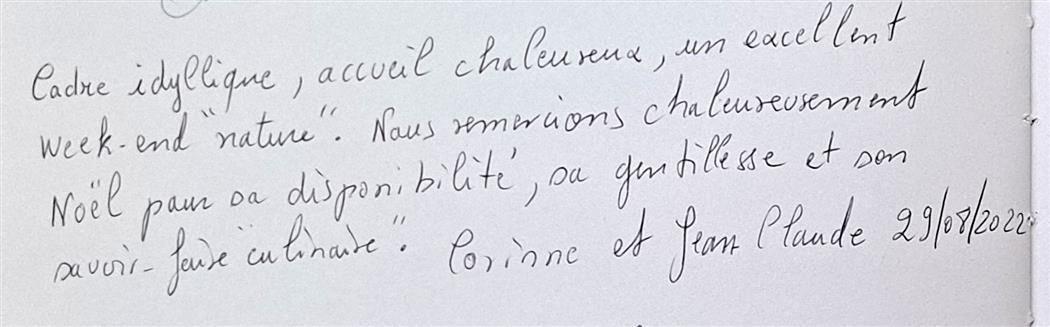 Cadre idyllique, accueil chaleureux, un excellent
week-end "nature". Nous remercions chaleureusement
Noël pour sa disponibilité, sa gentillesse et son
savoir-faire "culinaire". Corinne et Jean Claude 29/08/2022